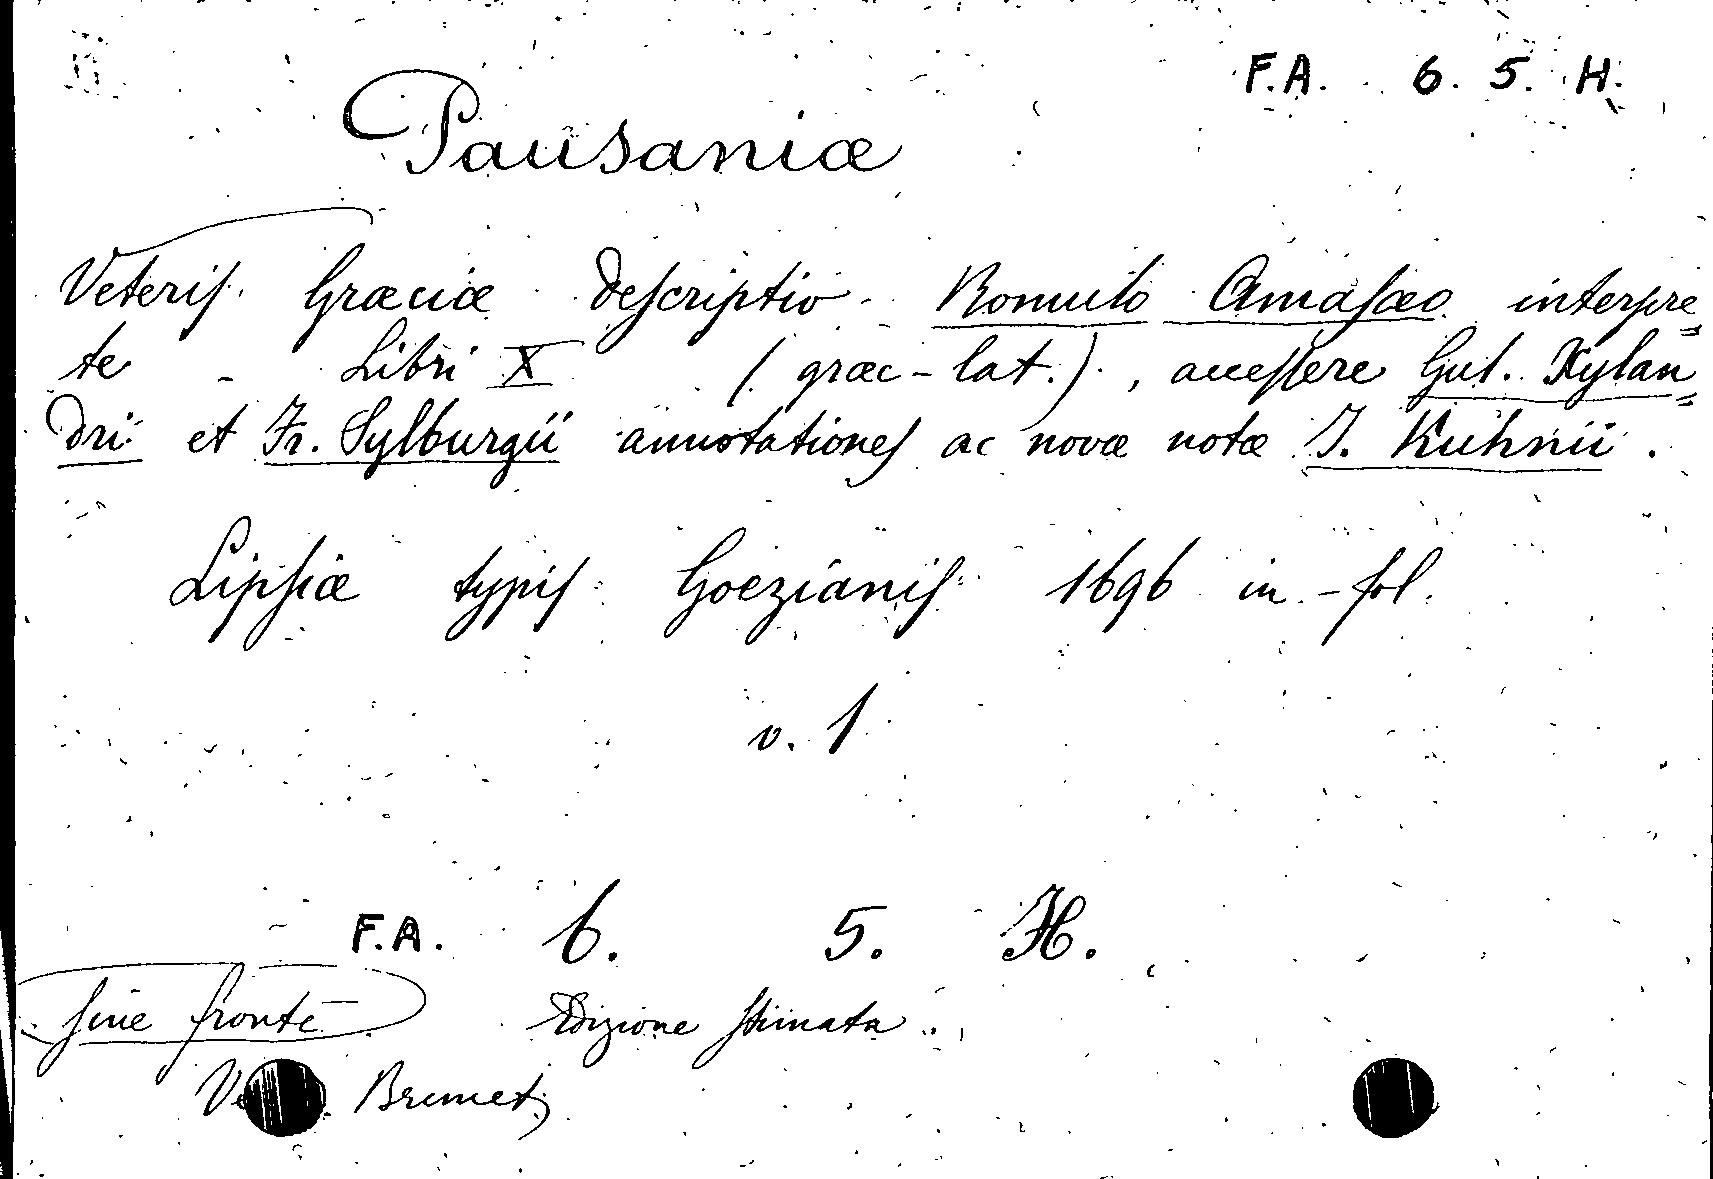 F.A. 6. 5. H.
Pausaniæ
Veteris Græciæ descriptio Romulo Amasæo interpre=
te - Libri X (græc-lat.), accessere Gul. Xylan=
dri et Fr. Sylburgii annotationes ac novæ notæ J. Kuhnii.
Lipsiæ typis Goezianis 1696 in-fol.
v. 1
F.A. 6. 5. H.
sine fronte Edizione stimata.
Brunet